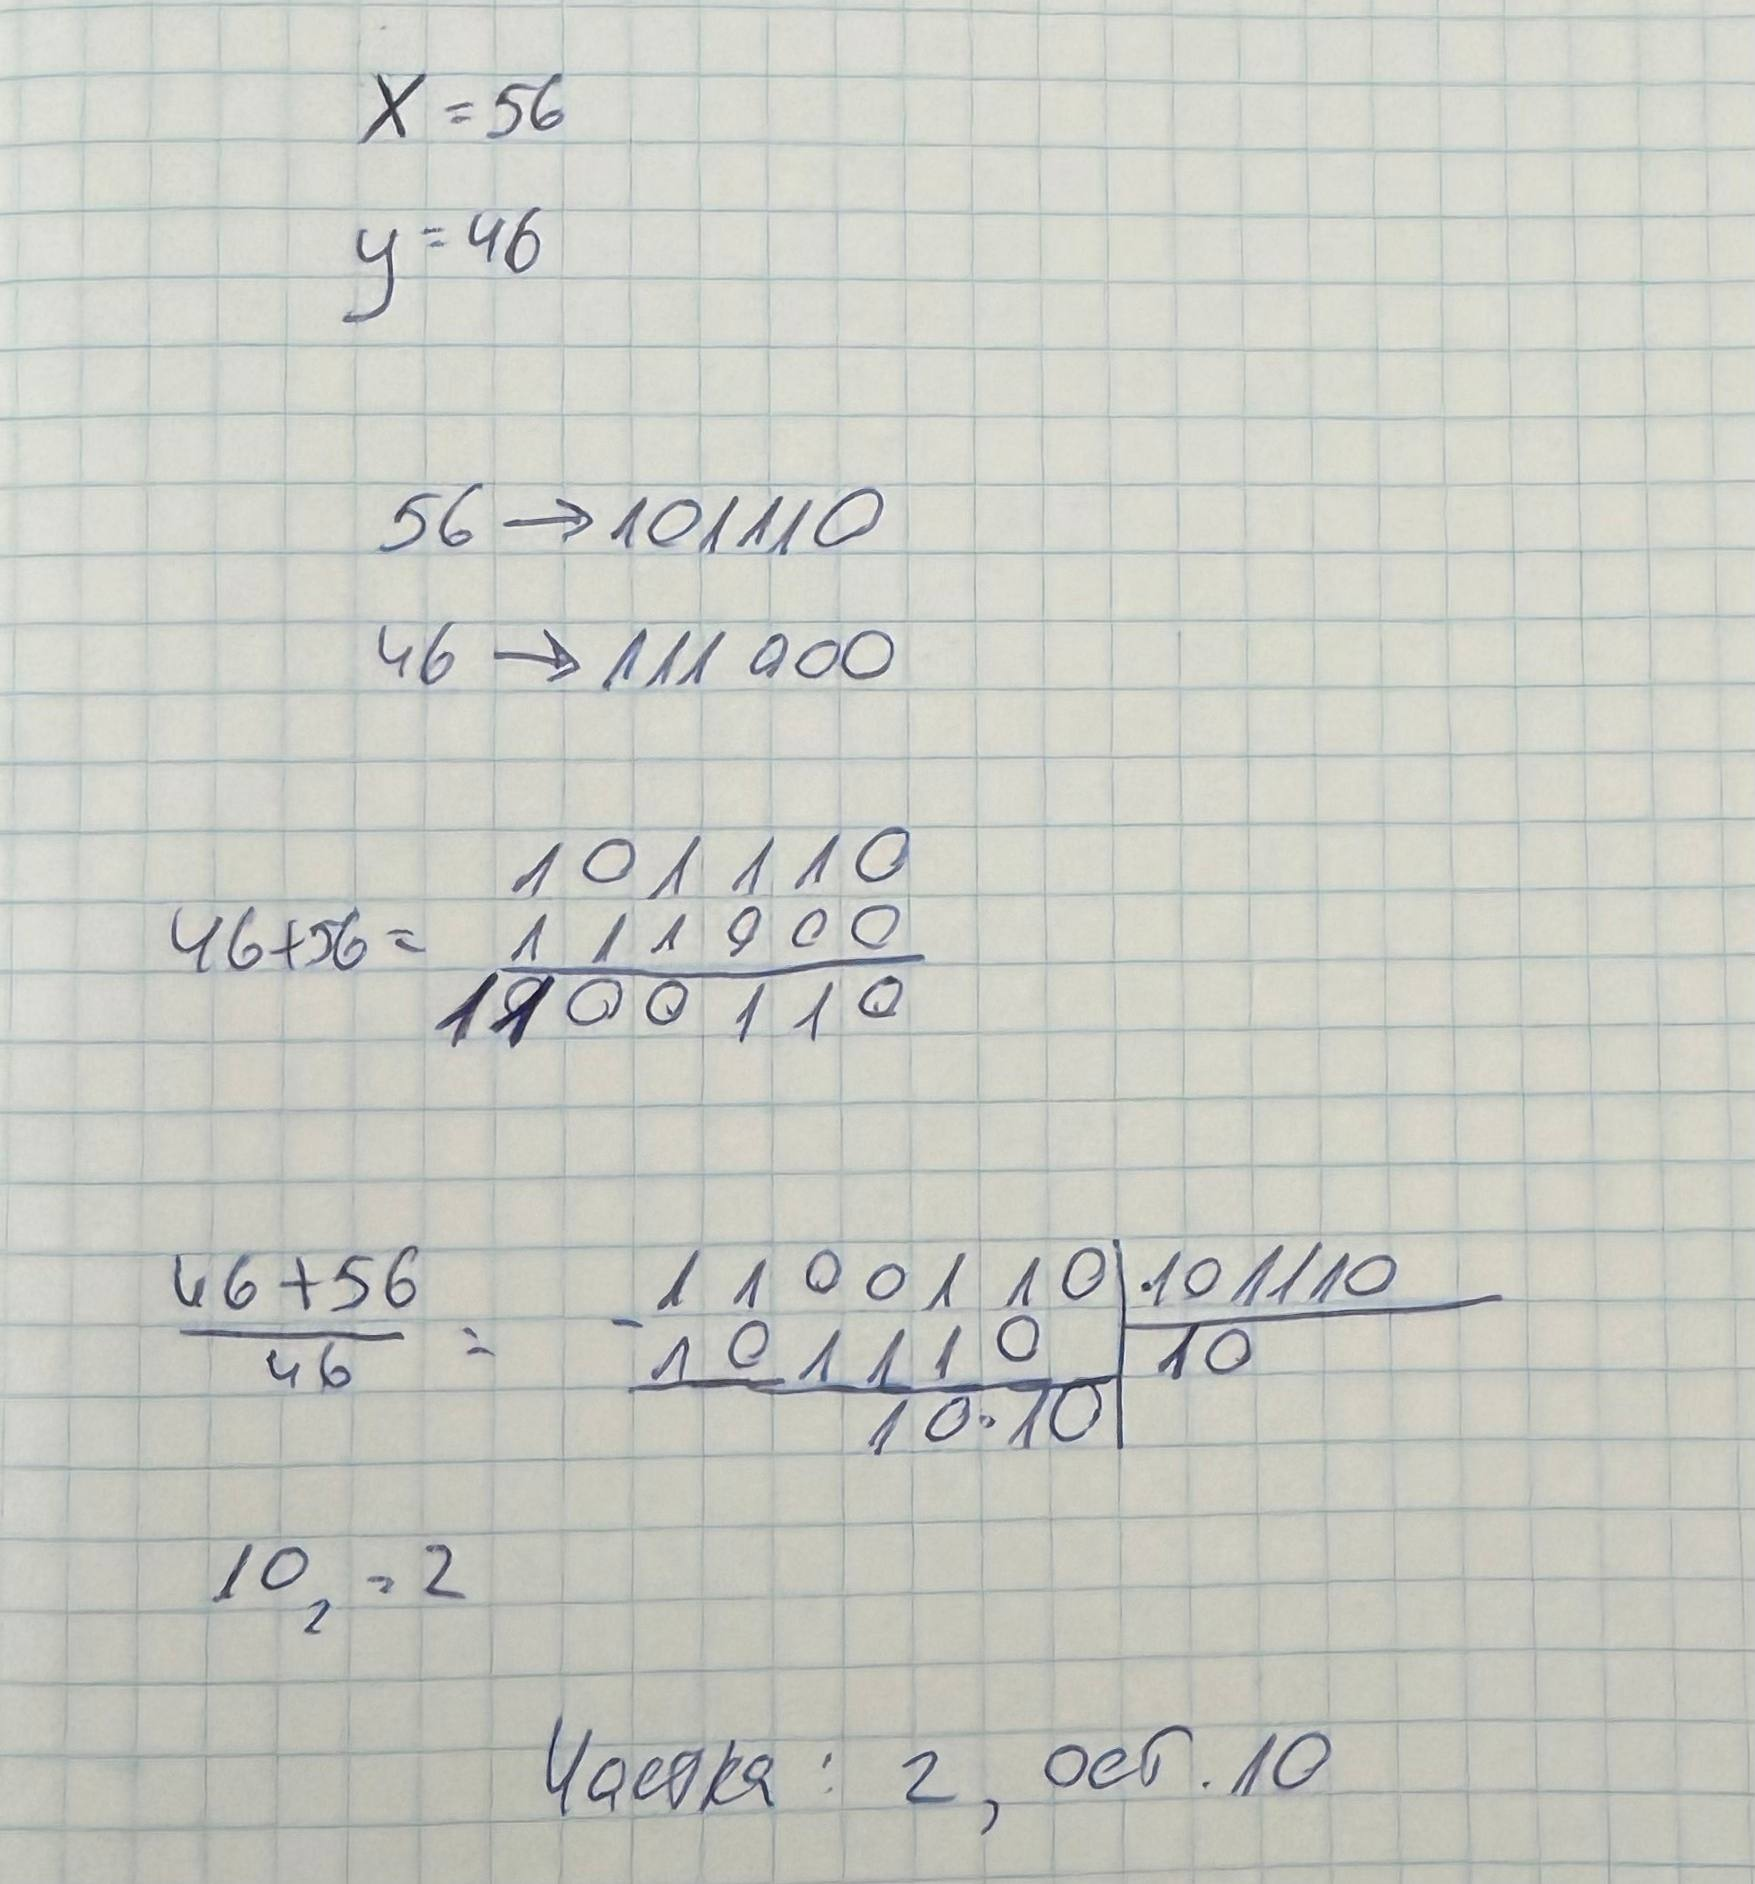 X = 56
y = 46
56 → 101110
46 → 111000
101110
46+56 = 111000
1100110
46+56 1100110 101110
= - 101110 10
46 1010
10₂ = 2
Частка: 2, ост. 10